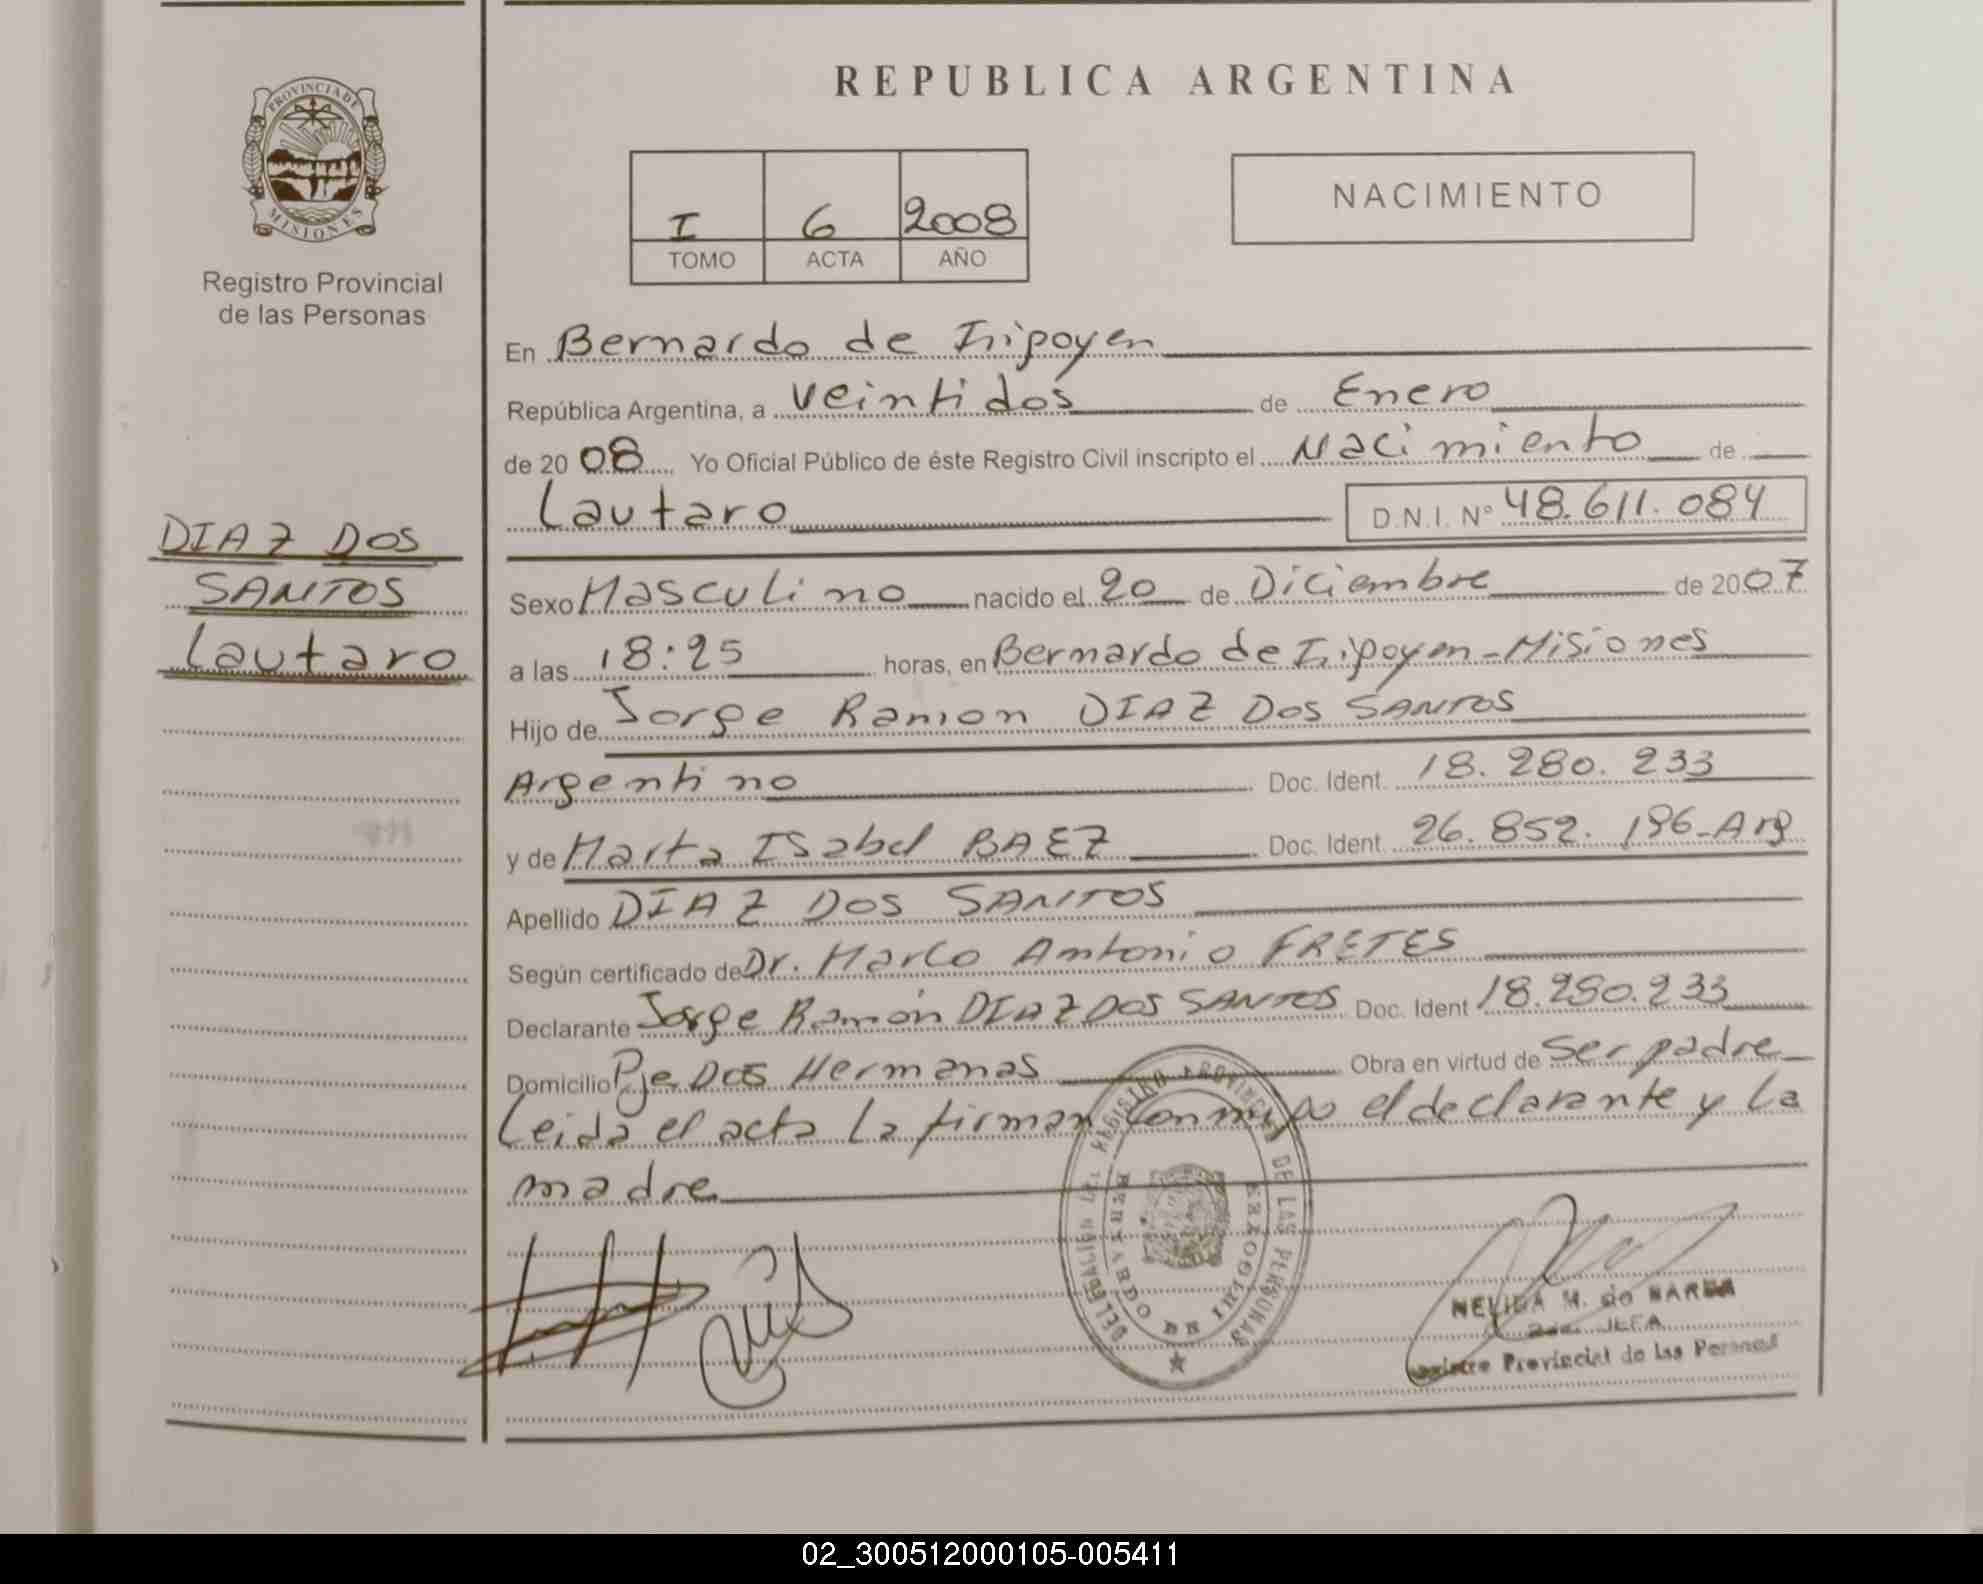 REPUBLICA ARGENTINA
PROVINCIA DE
MISIONES
Registro Provincial
de las Personas
I 6 2008
TOMO ACTA AÑO
NACIMIENTO
En Bernardo de Iripoyen
República Argentina, a veintidos de Enero
de 2008 Yo Oficial Público de éste Registro Civil inscripto el Nacimiento de
Lautaro D.N.I. Nº 48.611.084
DIAZ DOS
SANTOS
Lautaro
Sexo Masculino nacido el 20 de Diciembre de 2007
a las 18:25 horas, en Bernardo de Iripoyen-Misiones
Hijo de Jorge Ramon DIAZ DOS SANTOS
Argentino Doc. Ident. 18.280.233
y de Marta ISabel BAEZ Doc. Ident. 26.852.196-Arg
Apellido DIAZ DOS SANTOS
Según certificado de Dr. Marco Antonio FRETES
Declarante Jorge Ramón DIAZ DOS SANTOS Doc. Ident 18.280.233
Domicilio Pje Dos Hermanas Obra en virtud de Ser padre
Leida el acta la firman conmigo el declarante y la
madre
REGISTRO PROVINCIAL DE LAS PERSONAS
BERNARDO DE IRIGOYEN
NELIDA M. do
JEFA
Provincial de las
02_300512000105-005411